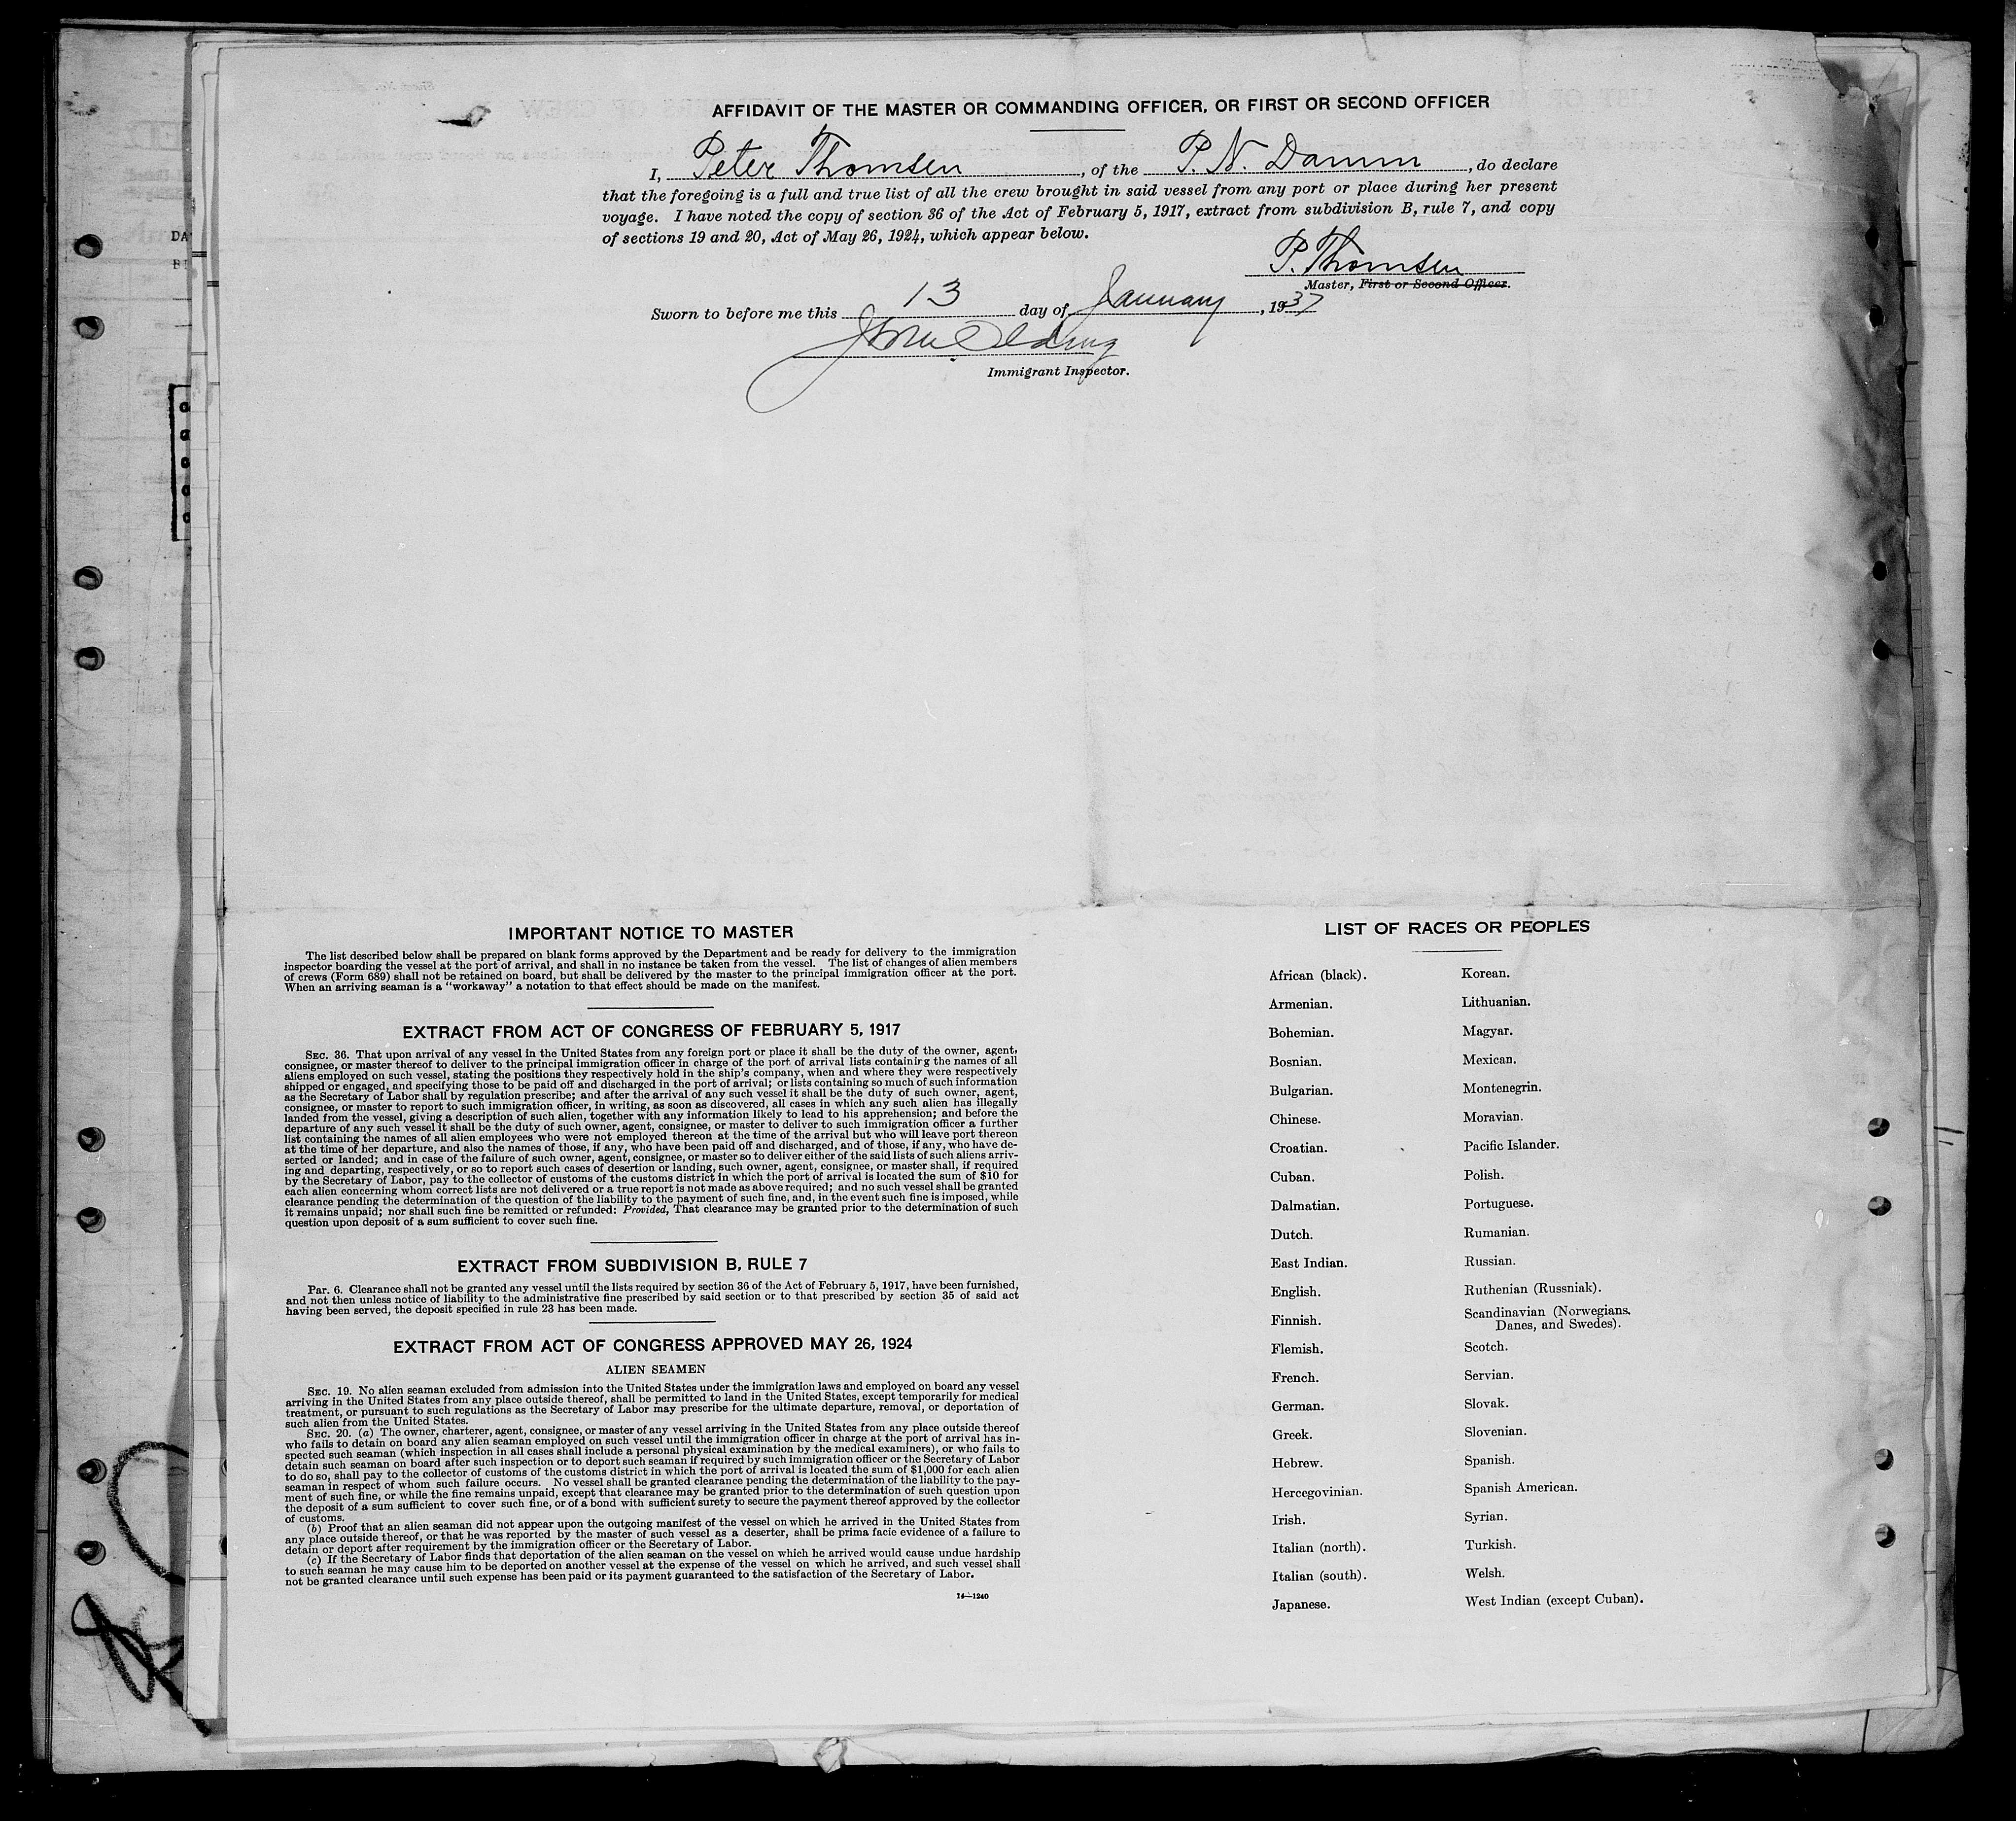 AFFIDAVIT OF THE MASTER OR COMMANDING OFFICER, OR FIRST OR SECOND OFFICER
I, Peter Thomsen, of the P. N. Damm, do declare
that the foregoing is a full and true list of all the crew brought in said vessel from any port or place during her present
voyage. I have noted the copy of section 36 of the Act of February 5, 1917, extract from subdivision B, rule 7, and copy
of sections 19 and 20, Act of May 26, 1924, which appear below.
P. Thomsen
Master, First or Second Officer.
Sworn to before me this 13 day of January, 1937
Immigrant Inspector.
IMPORTANT NOTICE TO MASTER
The list described below shall be prepared on blank forms approved by the Department and be ready for delivery to the immigration
inspector boarding the vessel at the port of arrival, and shall in no instance be taken from the vessel. The list of changes of alien members
of crews (Form 689) shall not be retained on board, but shall be delivered by the master to the principal immigration officer at the port.
When an arriving seaman is a "workaway" a notation to that effect should be made on the manifest.
EXTRACT FROM ACT OF CONGRESS OF FEBRUARY 5, 1917
SEC. 36. That upon arrival of any vessel in the United States from any foreign port or place it shall be the duty of the owner, agent,
consignee, or master thereof to deliver to the principal immigration officer in charge of the port of arrival lists containing the names of all
aliens employed on such vessel, stating the positions they respectively hold in the ship's company, when and where they were respectively
shipped or engaged, and specifying those to be paid off and discharged in the port of arrival; or lists containing so much of such information
as the Secretary of Labor shall by regulation prescribe; and after the arrival of any such vessel it shall be the duty of such owner, agent,
consignee, or master to report to such immigration officer, in writing, as soon as discovered, all cases in which any such alien has illegally
landed from the vessel, giving a description of such alien, together with any information likely to lead to his apprehension; and before the
departure of any such vessel it shall be the duty of such owner, agent, consignee, or master to deliver to such immigration officer a further
list containing the names of all alien employees who were not employed thereon at the time of the arrival but who will leave port thereon
at the time of her departure, and also the names of those, if any, who have been paid off and discharged, and of those, if any, who have de-
serted or landed; and in case of the failure of such owner, agent, consignee, or master so to deliver either of the said lists of such aliens arriv-
ing and departing, respectively, or so to report such cases of desertion or landing, such owner, agent, consignee, or master shall, if required
by the Secretary of Labor, pay to the collector of customs of the customs district in which the port of arrival is located the sum of $10 for
each alien concerning whom correct lists are not delivered or a true report is not made as above required; and no such vessel shall be granted
clearance pending the determination of the question of the liability to the payment of such fine, and, in the event such fine is imposed, while
it remains unpaid; nor shall such fine be remitted or refunded: Provided, That clearance may be granted prior to the determination of such
question upon deposit of a sum sufficient to cover such fine.
EXTRACT FROM SUBDIVISION B, RULE 7
PAR. 6. Clearance shall not be granted any vessel until the lists required by section 36 of the Act of February 5, 1917, have been furnished,
and not then unless notice of liability to the administrative fine prescribed by said section or to that prescribed by section 35 of said act
having been served, the deposit specified in rule 23 has been made.
EXTRACT FROM ACT OF CONGRESS APPROVED MAY 26, 1924
ALIEN SEAMEN
SEC. 19. No alien seaman excluded from admission into the United States under the immigration laws and employed on board any vessel
arriving in the United States from any place outside thereof, shall be permitted to land in the United States, except temporarily for medical
treatment, or pursuant to such regulations as the Secretary of Labor may prescribe for the ultimate departure, removal, or deportation of
such alien from the United States.
SEC. 20. (a) The owner, charterer, agent, consignee, or master of any vessel arriving in the United States from any place outside thereof
who fails to detain on board any alien seaman employed on such vessel until the immigration officer in charge at the port of arrival has in-
spected such seaman (which inspection in all cases shall include a personal physical examination by the medical examiners), or who fails to
detain such seaman on board after such inspection or to deport such seaman if required by such immigration officer or the Secretary of Labor
to do so, shall pay to the collector of customs of the customs district in which the port of arrival is located the sum of $1,000 for each alien
seaman in respect of whom such failure occurs. No vessel shall be granted clearance pending the determination of the liability to the pay-
ment of such fine, or while the fine remains unpaid, except that clearance may be granted prior to the determination of such question upon
the deposit of a sum sufficient to cover such fine, or of a bond with sufficient surety to secure the payment thereof approved by the collector
of customs.
(b) Proof that an alien seaman did not appear upon the outgoing manifest of the vessel on which he arrived in the United States from
any place outside thereof, or that he was reported by the master of such vessel as a deserter, shall be prima facie evidence of a failure to
detain or deport after requirement by the immigration officer or the Secretary of Labor.
(c) If the Secretary of Labor finds that deportation of the alien seaman on the vessel on which he arrived would cause undue hardship
to such seaman he may cause him to be deported on another vessel at the expense of the vessel on which he arrived, and such vessel shall
not be granted clearance until such expense has been paid or its payment guaranteed to the satisfaction of the Secretary of Labor.
14—1240
LIST OF RACES OR PEOPLES
African (black).
Armenian.
Bohemian.
Bosnian.
Bulgarian.
Chinese.
Croatian.
Cuban.
Dalmatian.
Dutch.
East Indian.
English.
Finnish.
Flemish.
French.
German.
Greek.
Hebrew.
Hercegovinian.
Irish.
Italian (north).
Italian (south).
Japanese.
Korean.
Lithuanian.
Magyar.
Mexican.
Montenegrin.
Moravian.
Pacific Islander.
Polish.
Portuguese.
Rumanian.
Russian.
Ruthenian (Russniak).
Scandinavian (Norwegians.
Danes, and Swedes).
Scotch.
Servian.
Slovak.
Slovenian.
Spanish.
Spanish American.
Syrian.
Turkish.
Welsh.
West Indian (except Cuban).